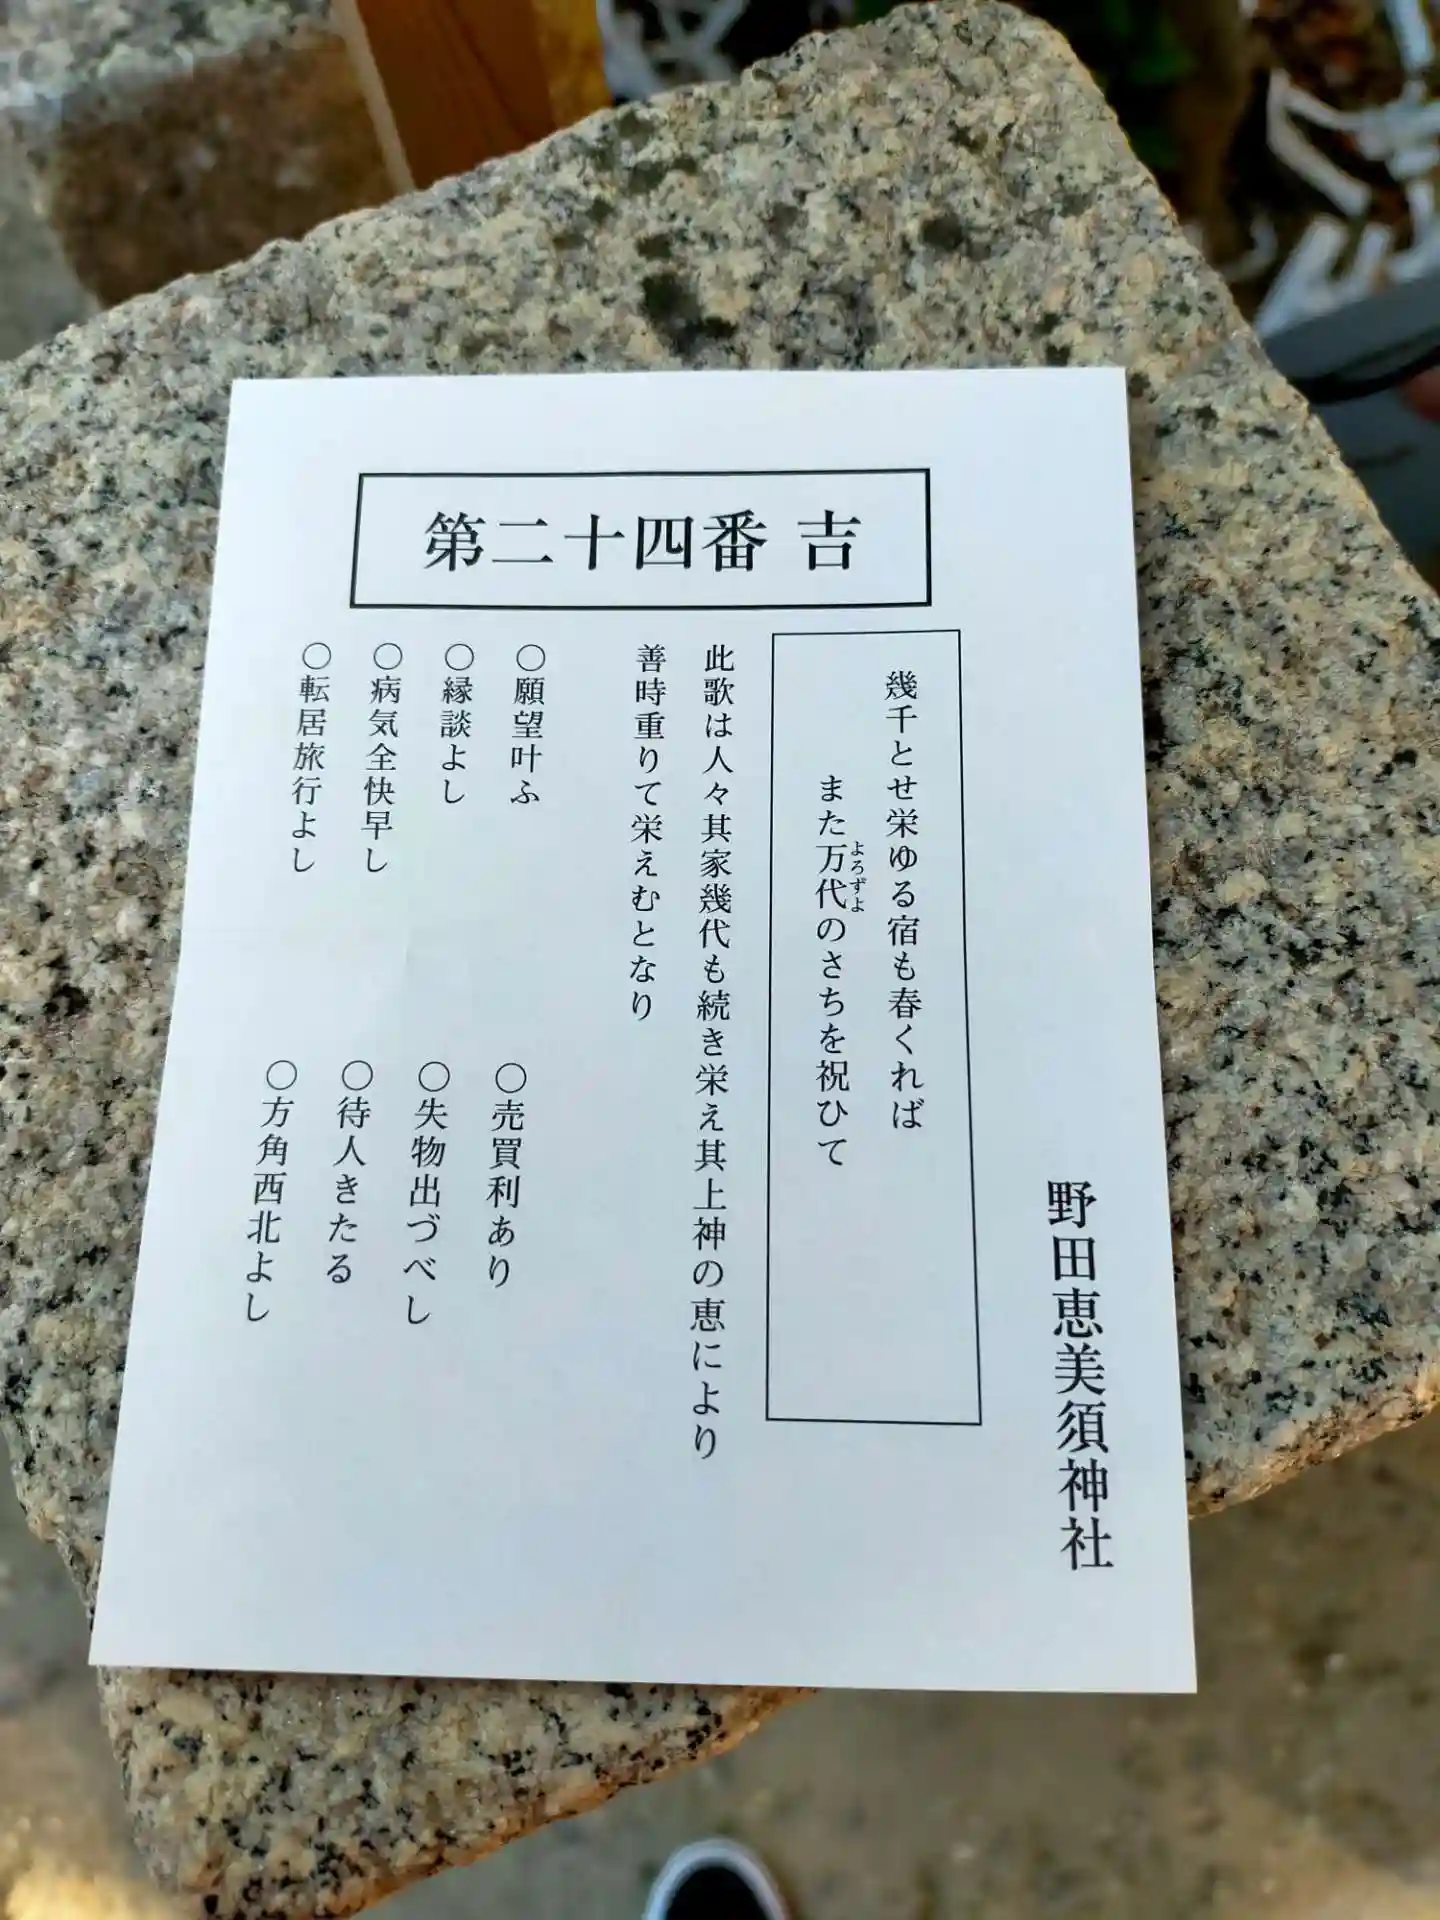 野田恵美須神社
第二十四番 吉
幾千とせ栄ゆる宿も春くれば
また万代のさちを祝ひて
よろずよ
此歌は人々其家幾代も続き栄え其上神の恵により
善時重りて栄えむとなり
〇願望叶ふ
〇縁談よし
〇病気全快早し
〇転居旅行よし
〇売買利あり
〇失物出づべし
〇待人きたる
〇方角西北よし